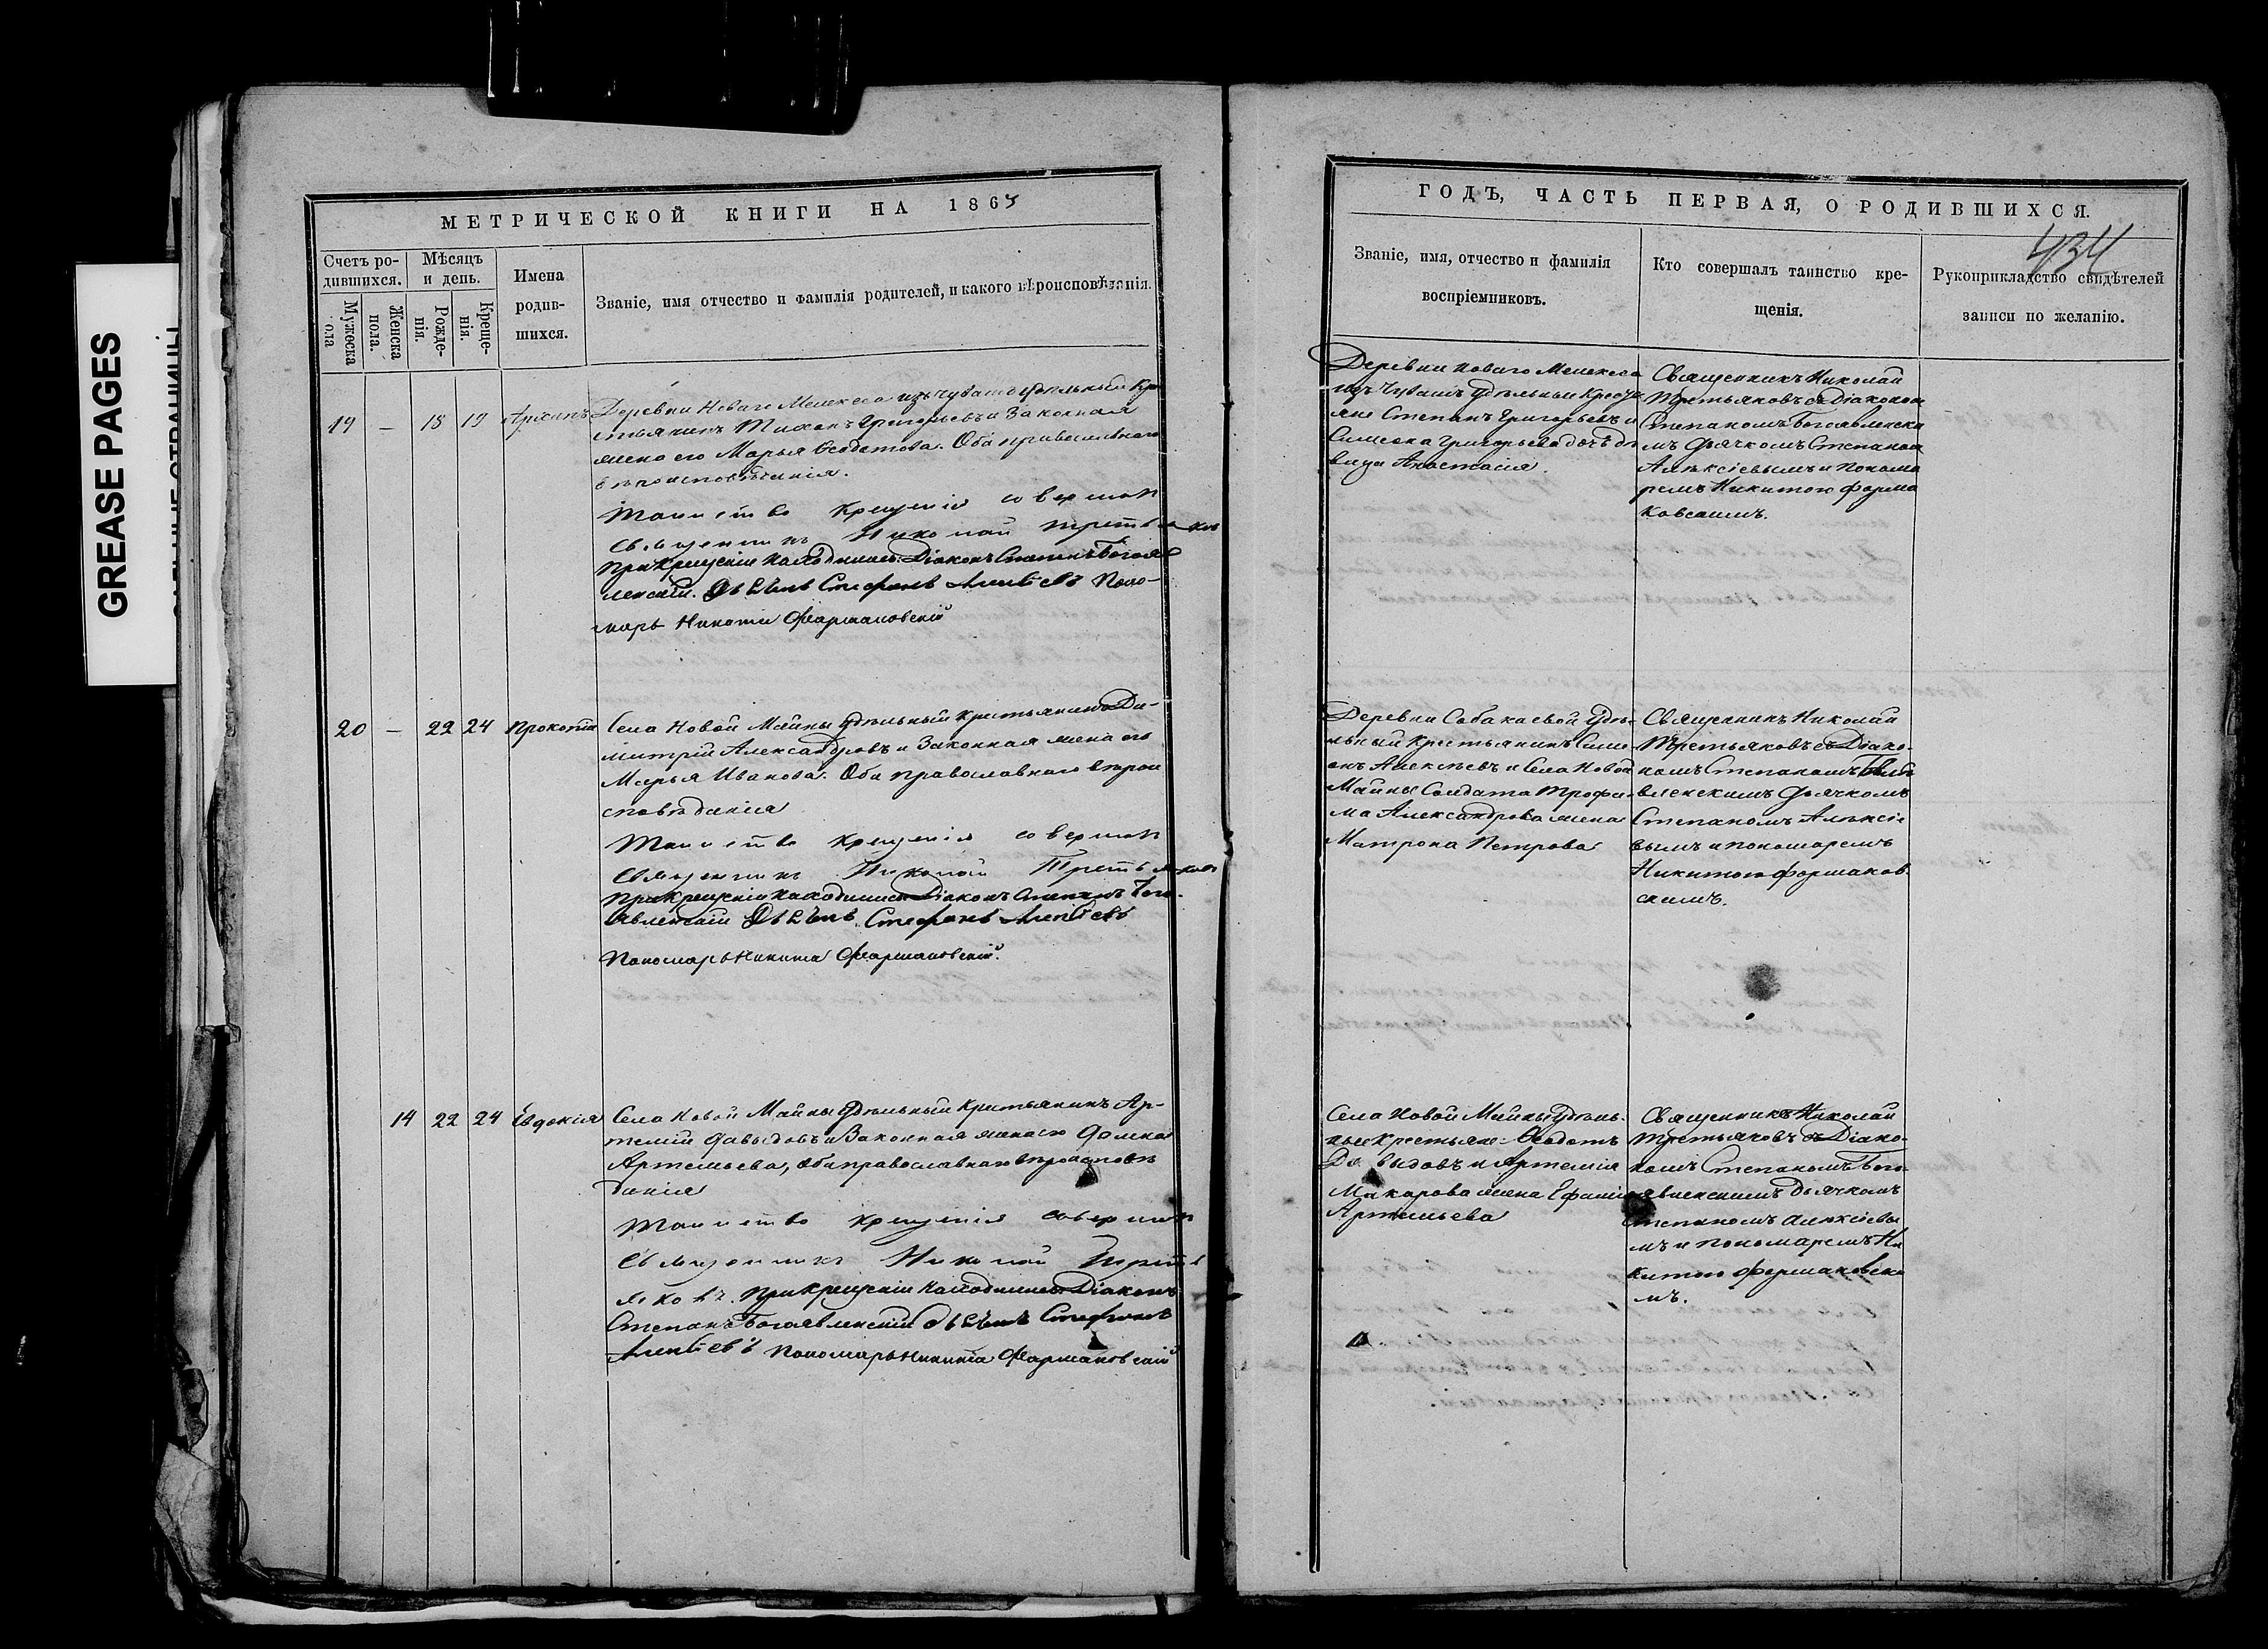 GREASE PAGES
МЕТРИЧЕСКОЙ КНИГИ НА 1865
Счетъ ро-
дившихся.
Мѣсяцъ
и день.
Мужеска
пола
Женска
пола.
Рожде-
нія.
Креще-
нія.
Имена
родив-
шихся.
Званіе, имя отчество и фамилія родителей, и какого вѣроисповѣданія.
19 — 18 19
Деревни Новаго Мелекеса изъ чувашъ удѣльный Кре
стьянинъ Тихонъ Григорьевъ и Законная
жена его Марья Ѳеодотова. Оба православнаго
вѣроисповѣданія.
Таинство крещенія совершалъ
Священникъ Николай Третьяковъ
При крещеніи находились: Діаконъ Степанъ Богояв
ленскій. Стефанъ Алексіевъ Поно-
марь Никита Фармаковскій
20 — 22 24 Прокопій
Села Новой Майны удѣльный крестьянинъ Ди-
митрій Александровъ и Законная жена его
Марья Иванова. Оба православнаго вѣрои
сповѣданія
Таинство крещенія совершалъ
Священникъ Николай Третьяковъ
При крещеніи находились Діаконъ Степанъ Бого-
явленскій Стефанъ Алексіевъ
Пономарь Никита Фармаковскій.
14 22 24 Евдокія
Села Новой Майны удѣльный Крестьянинъ Ар-
темій Давыдовъ и Законная жена его Домна
Артемьева, оба православнаго вѣроисповѣ
данія
Таинство крещенія совершалъ
Священникъ Николай Треть
яковъ. При крещеніи находились Діаконъ
Степанъ Богоявленскій Стефанъ
Алексіевъ Пономарь Никита Фармаковскій
ГОДЪ, ЧАСТЬ ПЕРВАЯ, О РОДИВШИХСЯ.
434
Званіе, имя, отчество и фамилія
воспріемниковъ.
Кто совершалъ таинство кре-
щенія.
Рукоприкладство свидѣтелей
записи по желанію.
Деревни Новаго Мелекеса
изъ Чувашъ удѣльные Кресть
яне Степанъ Григорьевъ и
Симеона Григорьева дочь дѣ
вица Анастасія.
Священникъ Николай
Третьяковъ съ Діакономъ
Степаномъ Богоявленски
мъ Дьячкомъ Степаномъ
Алексіевымъ и Понома
ремъ Никитою Фарма
ковскимъ.
Деревни Собакаевой Удѣ-
льный Крестьянинъ Симе-
онъ Алексѣевъ и Села Новой
Майны Солдата Трофи-
ма Александрова жена
Матрона Петрова
Священникъ Николай
Третьяковъ съ Діако-
номъ Степаномъ Богоя
вленскимъ Дьячкомъ
Степаномъ Алексіе
вымъ и пономаремъ
Никитою Фармаков-
скимъ.
Села Новой Майны Удѣль-
ные Крестьяне: Ѳеодотъ
Давыдовъ и Артемія
Макарова жена Ефимія
Артемьева
Священникъ Николай
Третьяковъ съ Діако-
номъ Степаномъ Бого-
явленскимъ дьячкомъ
Степаномъ Алексіевы
мъ и пономаремъ Ни
китою Фармаковски
мъ.